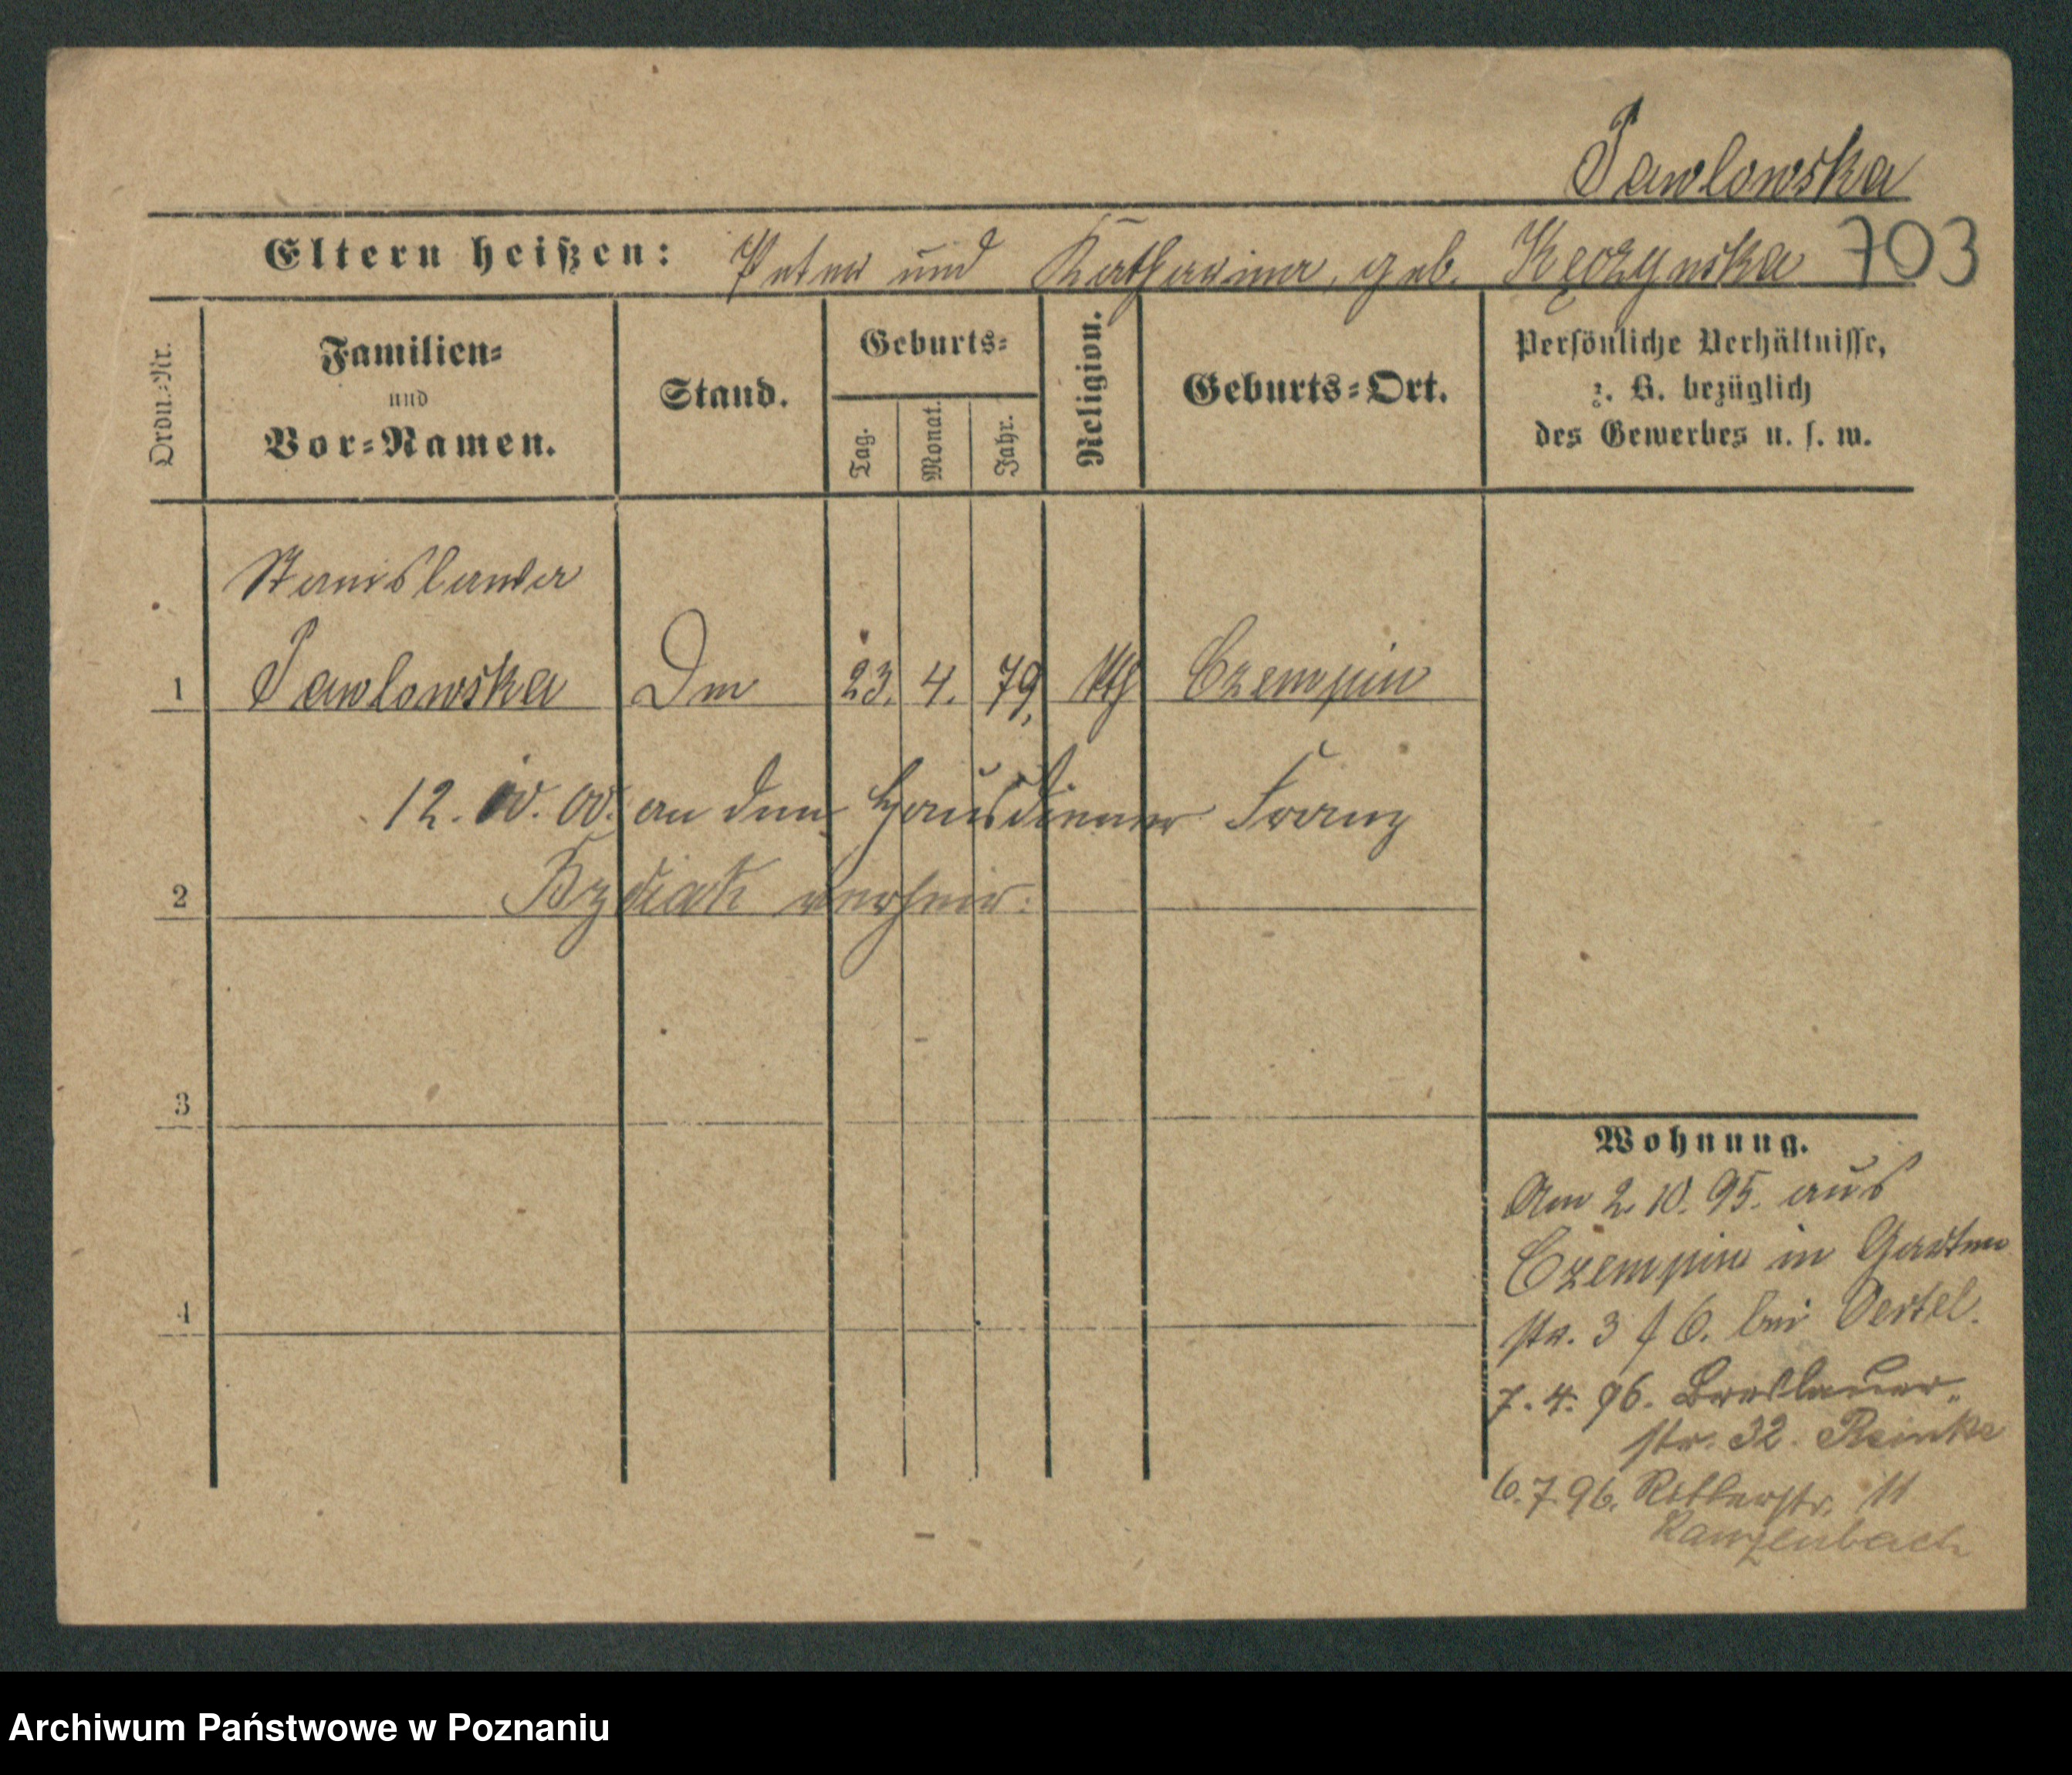 Pawlowska
Eltern heißen: Peter und Katharina, geb. Kęczynska 703
Ordn.-Nr.
Familien-
und
Vor-Namen.
Stand.
Geburts-
Tag.
Monat.
Jahr.
Religion.
Geburts-Ort.
Persönliche Verhältnisse,
z. B. bezüglich
des Gewerbes u. s. w.
Stanislawa
1 Pawlowska Dm 23. 4. 79. kth Czempin
12. 00. an den Hausdiener Franz
2 Bzdiak verheir.
3
4
Wohnung.
Am 2. 10. 95. aus
Czempin in Garten
str. 3 f 6. bei Oertel.
7. 4. 96. Breslauer-
str. 32. Reinke
6. 7. 96. Ritterstr. 11
Kanzenbach
Archiwum Państwowe w Poznaniu